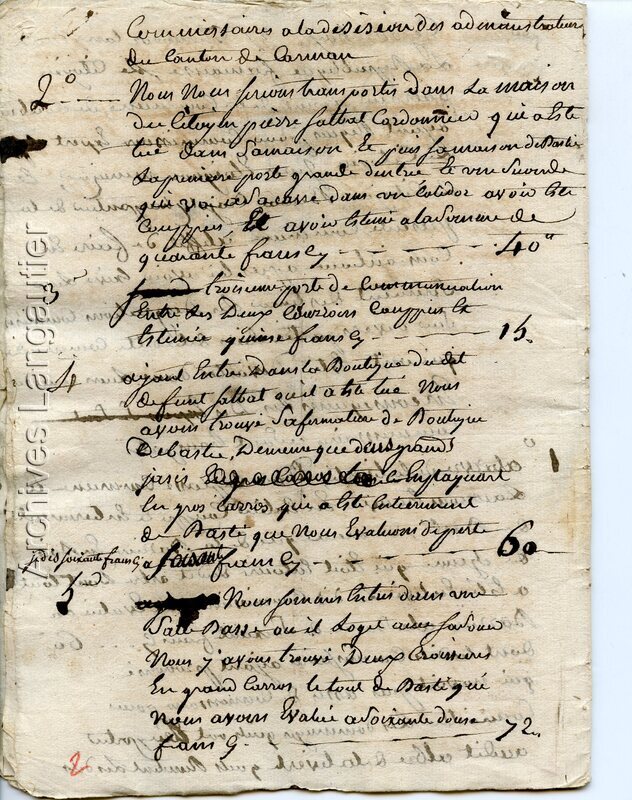 Commissaires a la desision des administrateurs
du Canton de Carman
2° Nous Nous serions transportés dans La maison
du Citoyen pierre Salbat Cordonnier qui a Esté
tué dans Samaison, Et puis Samaison de Bastie
La premiere porte grande dentre Et une Segonde
qui dans un Colidor avoir Esté
Couppés, Et avoir Estimé a la Somme de
quarante frans Cy 40"
3 troisieme porte de Communication
Entre les Deux Courroirs Couppée Et
Estimée quinse frans Cy 15.
4 ayant Entré Dans la Boutique du dit
defunt Salbat qu il a Esté tué Nous
avons trouvé Safirmature de Boutique
Debastie, De meme que deus grans
En plaquant
En gros Carros qui a Esté Entierement
de Basti que Nous Evaluons de perte
je dis soixante frans Cy a frans Cy 60
5 Nous sommes Entrés dans une
Salle Basse ou il Loget
Nous y avons trouvé Deux Croisieres
En grand Carros, le tout de Basti que
Nous avons Evalué a Soixante douse
frans Cy. 72
2
Archives Lengautier